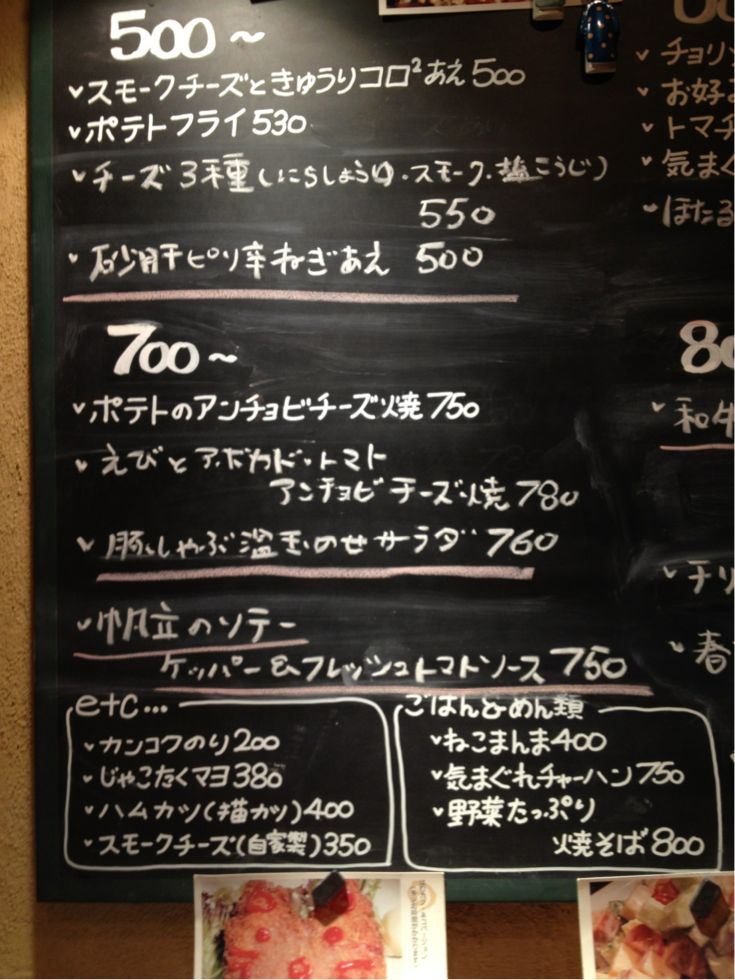 500~
スモークチーズときゅうりコロ²あえ500
ポテトフライ530
チーズ3種(にらしょうゆ・スモーク・塩こうじ)
550
砂肝ピリ辛ねぎあえ 500
700~
ポテトのアンチョビチーズ焼750
えびとアボカド・トマト
アンチョビチーズ焼780
豚しゃぶ温玉のせサラダ 760
帆立のソテー
ケッパー&フレッシュトマトソース750
etc...
カンコクのり200
じゃこたくマヨ380
ハムカツ(猫カツ)400
スモークチーズ(自家製)350
ごはん&めん類
ねこまんま400
気まぐれチャーハン750
野菜たっぷり
焼そば800
チョリ
お好
トマチ
気まぐ
ほたる
80
和牛
チリ
春